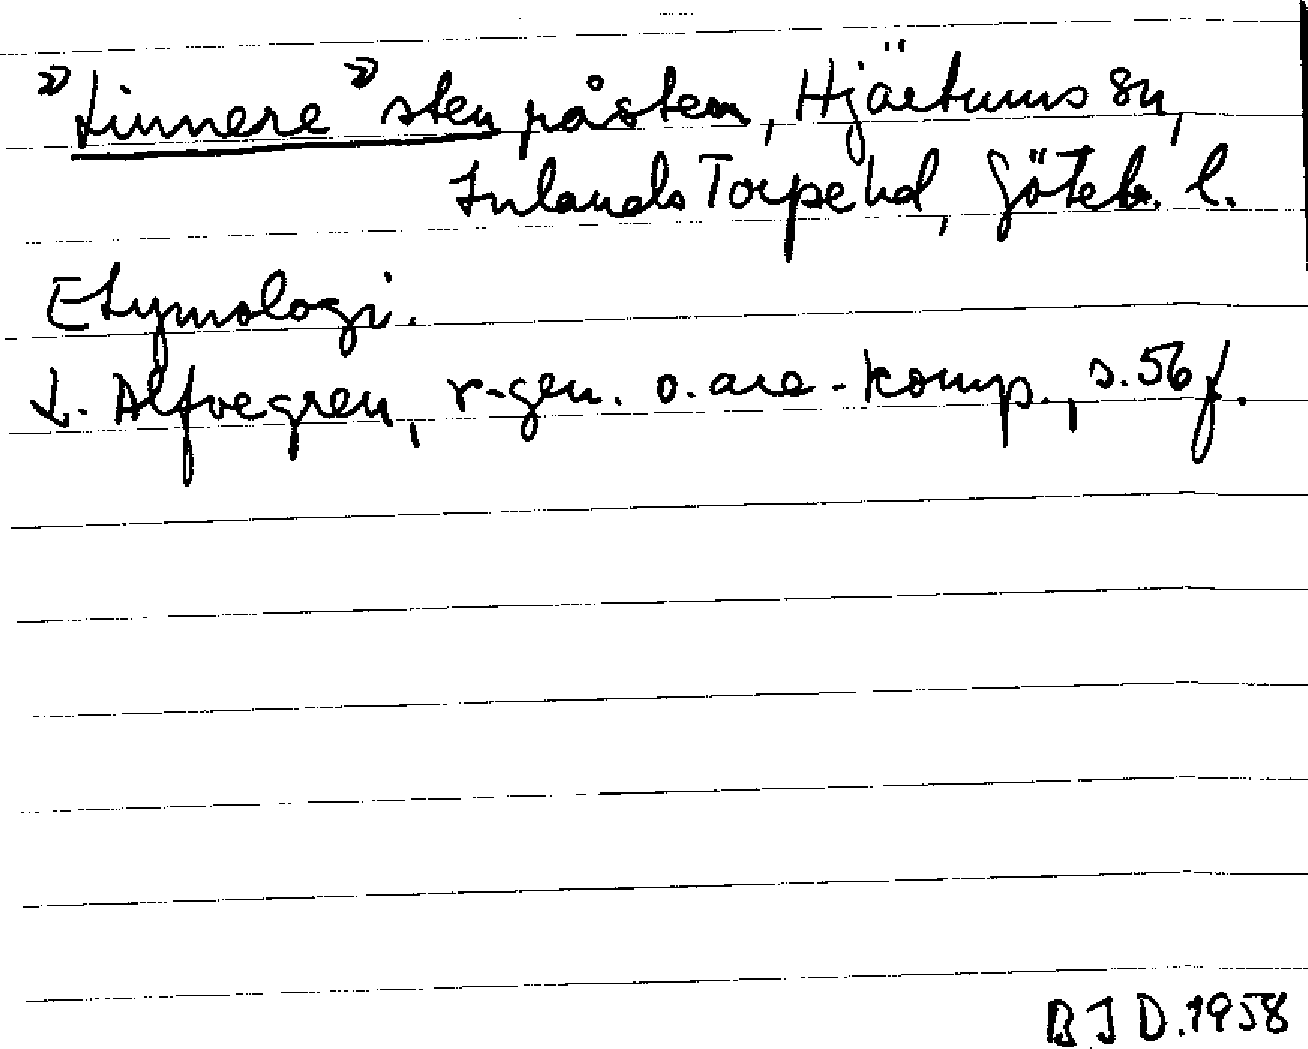 "Linnere" sten påsten, Hjärtums sn,
Inlands Torpe hd, Göteb. l.
Etymologi.
L. Alfvegren, r-gen. o. are-komp., s. 56 f.
B J D. 1958